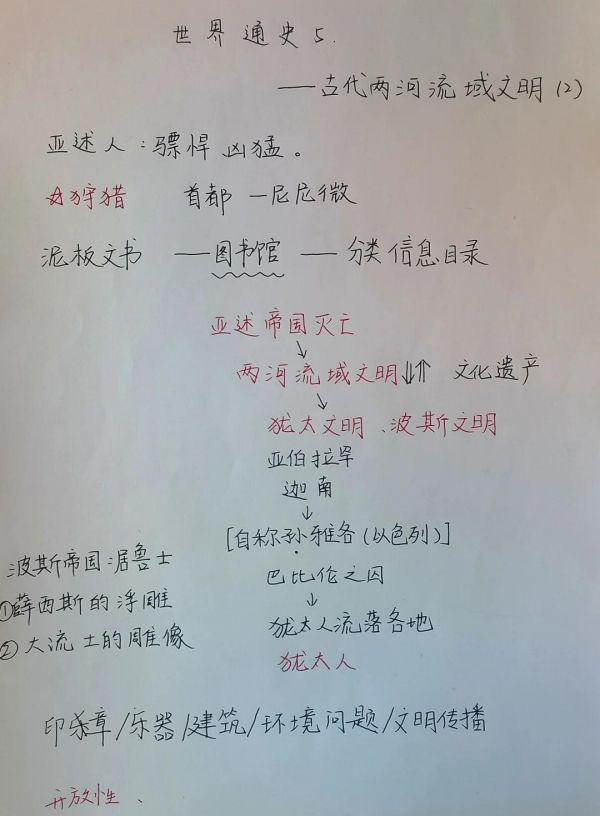 世界通史5.
——古代两河流域文明(2)
亚述人：骠悍 凶猛。
☆狩猎 首都 —尼尼微
泥板文书 ——图书馆 —— 分类信息目录
亚述帝国灭亡
↓
两河流域文明↓⇈ 文化遗产
↓
犹太文明、波斯文明
亚伯拉罕
迦南
↓
[自称孙雅各(以色列)]
巴比伦之囚
↓
犹太人流落各地
犹太人
波斯帝国:居鲁士
①薛西斯的浮雕
②大流士的雕像
印章/乐器/建筑/环境问题/文明传播
开放性、